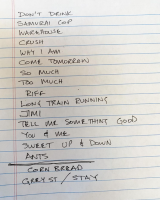 DON'T DRINK
SAMURAI COP
WAREHOUSE
CRUSH
WHY I AM
COME TOMORROW
SO MUCH
TOO MUCH
RIFF
LONG TRAIN RUNNING
JIMI
TELL ME SOMETHING GOOD
YOU & ME
SWEET UP & DOWN
ANTS
CORN BREAD
GREY ST / STAY